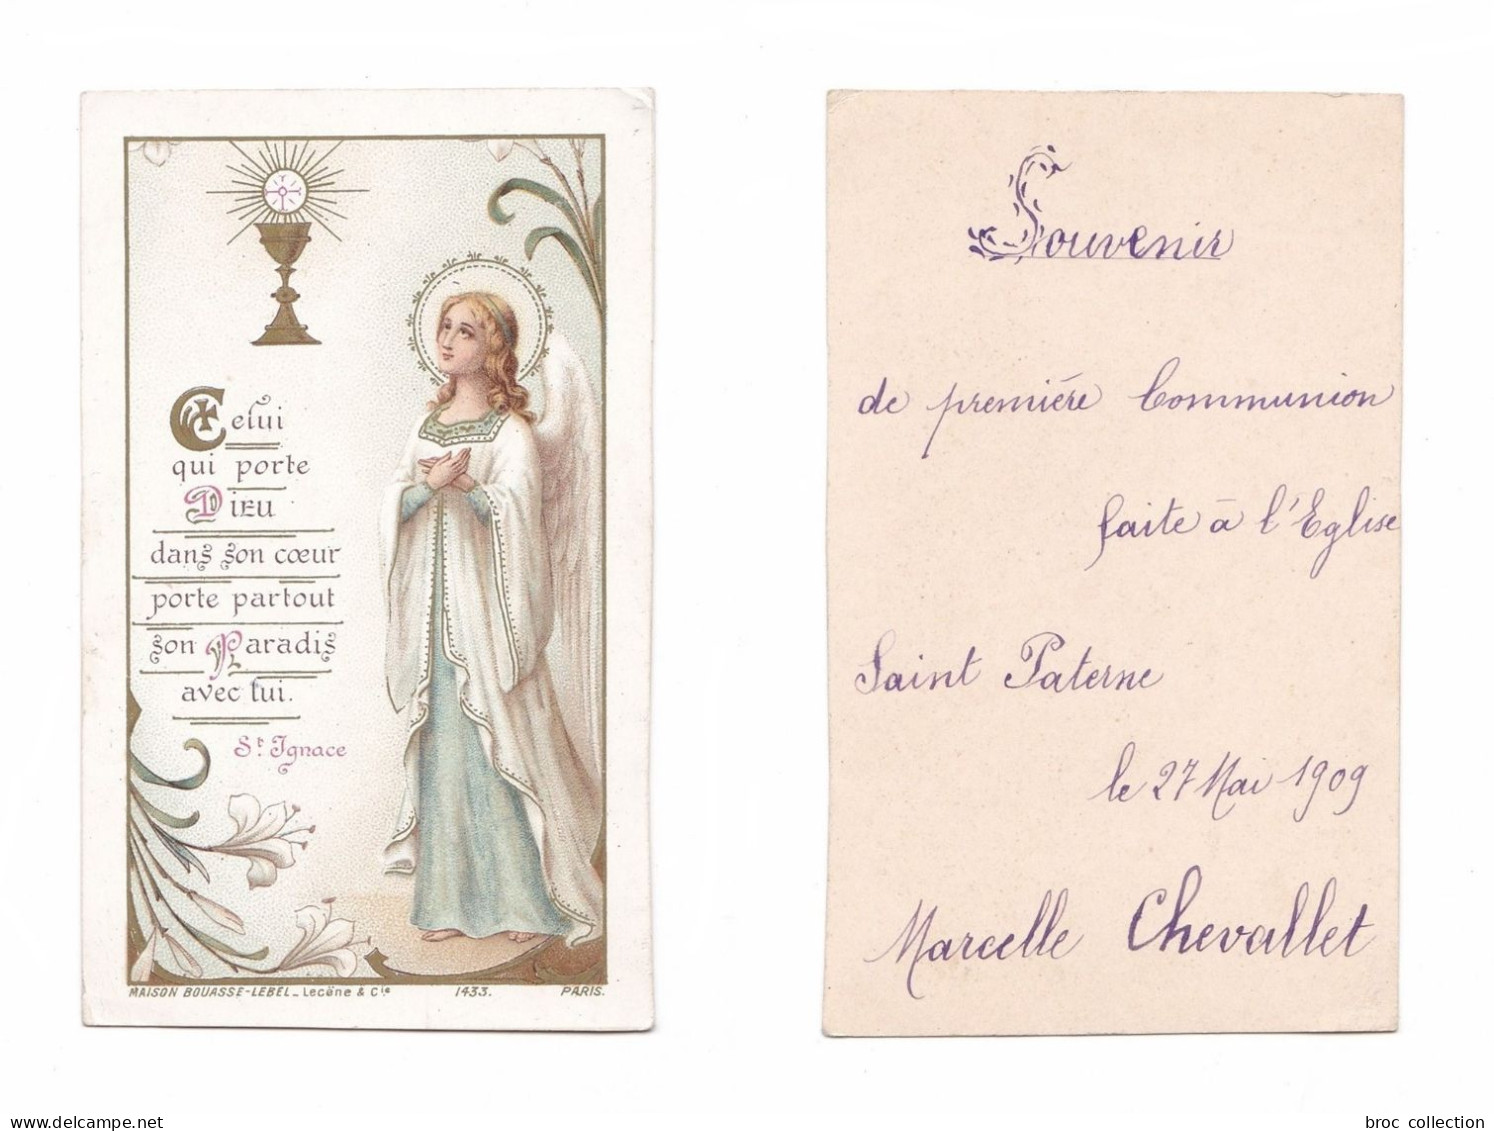 Celui
qui porte
Dieu
dans son cœur
porte partout
son Paradis
avec lui.
St. Ignace
MAISON BOUASSE-LEBEL_ Lecène & Cie 1433. PARIS.
Souvenir
de première Communion
faite à l'Eglise
Saint Paterne
le 27 Mai 1909
Marcelle Chevallet
delcampe.net
broc collection